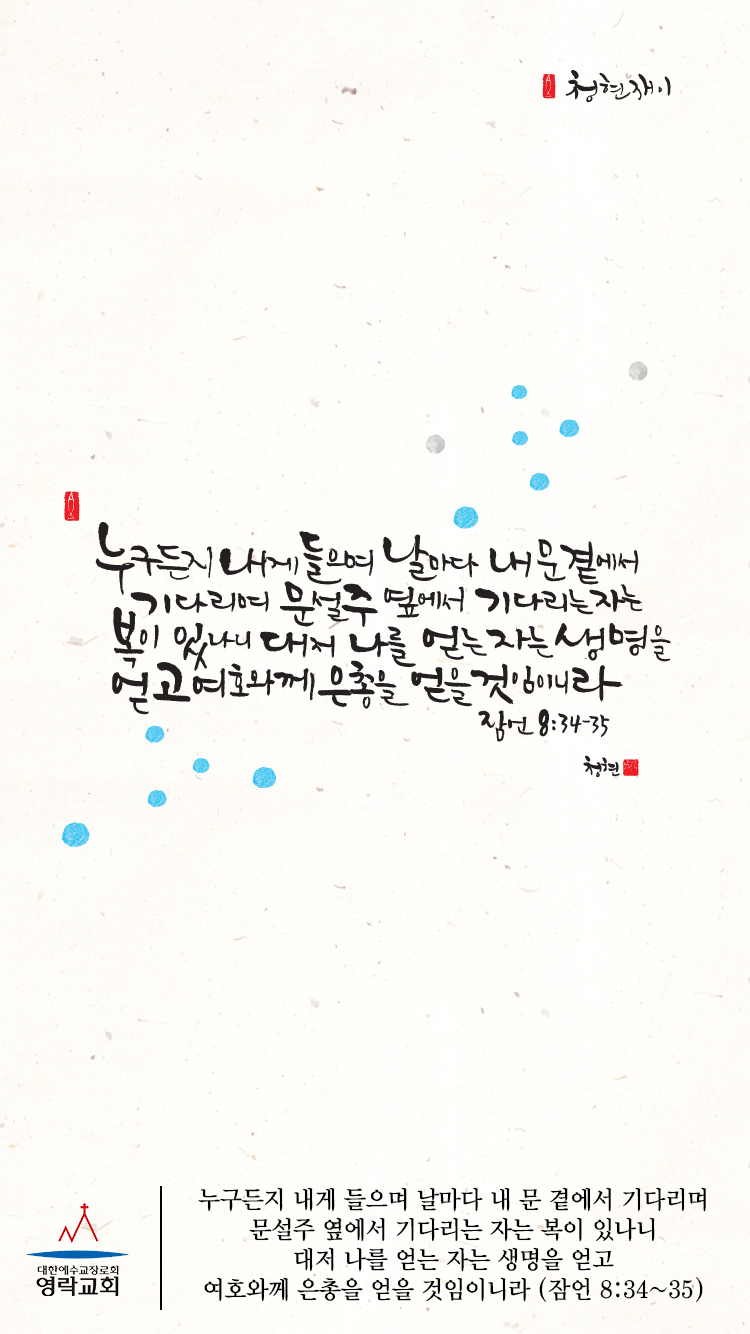 청현재이
누구든지 내게 들으며 날마다 내 문 곁에서
기다리며 문설주 옆에서 기다리는 자는
복이 있나니 대저 나를 얻는 자는 생명을
얻고 여호와께 은총을 얻을 것임이니라
잠언 8:34-35
청현
누구든지 내게 들으며 날마다 내 문 곁에서 기다리며
문설주 옆에서 기다리는 자는 복이 있나니
대저 나를 얻는 자는 생명을 얻고
여호와께 은총을 얻을 것임이니라 (잠언 8:34~35)
대한예수교장로회
영락교회